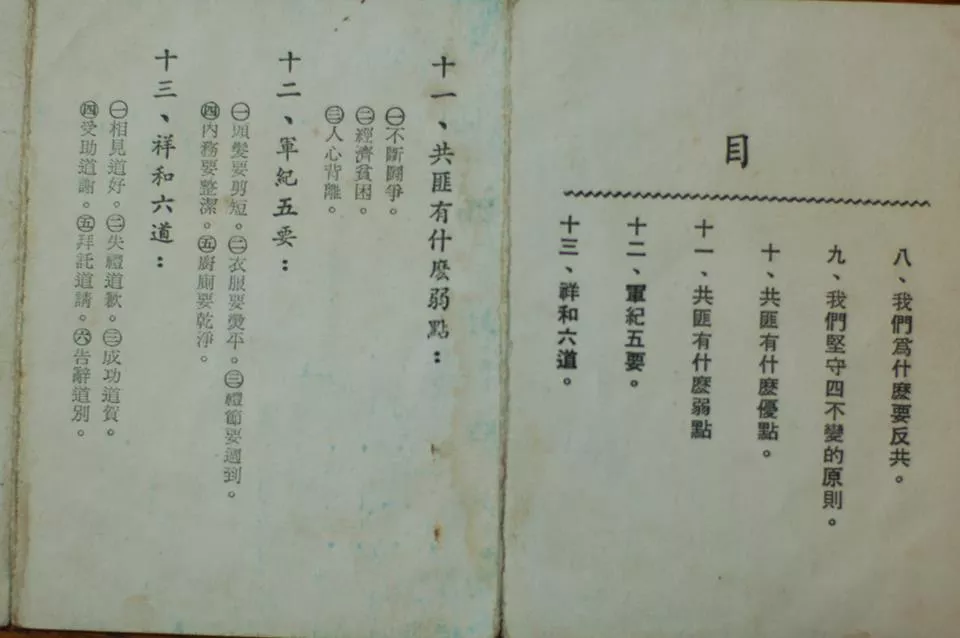 目
八、我們爲什麼要反共。
九、我們堅守四不變的原則。
十、共匪有什麼優點。
十一、共匪有什麼弱點
十二、軍紀五要。
十三、祥和六道。
十一、共匪有什麼弱點：
㊀不斷鬪爭。
㊁經濟貧困。
㊂人心背離。
十二、軍紀五要：
㊀頭髮要剪短。㊁衣服要燙平。㊂禮節要週到。
㊃內務要整潔。㊄廚廁要乾淨。
十三、祥和六道：
㊀相見道好。㊁失禮道歉。㊂成功道賀。
㊃受助道謝。㊄拜託道請。㊅告辭道別。